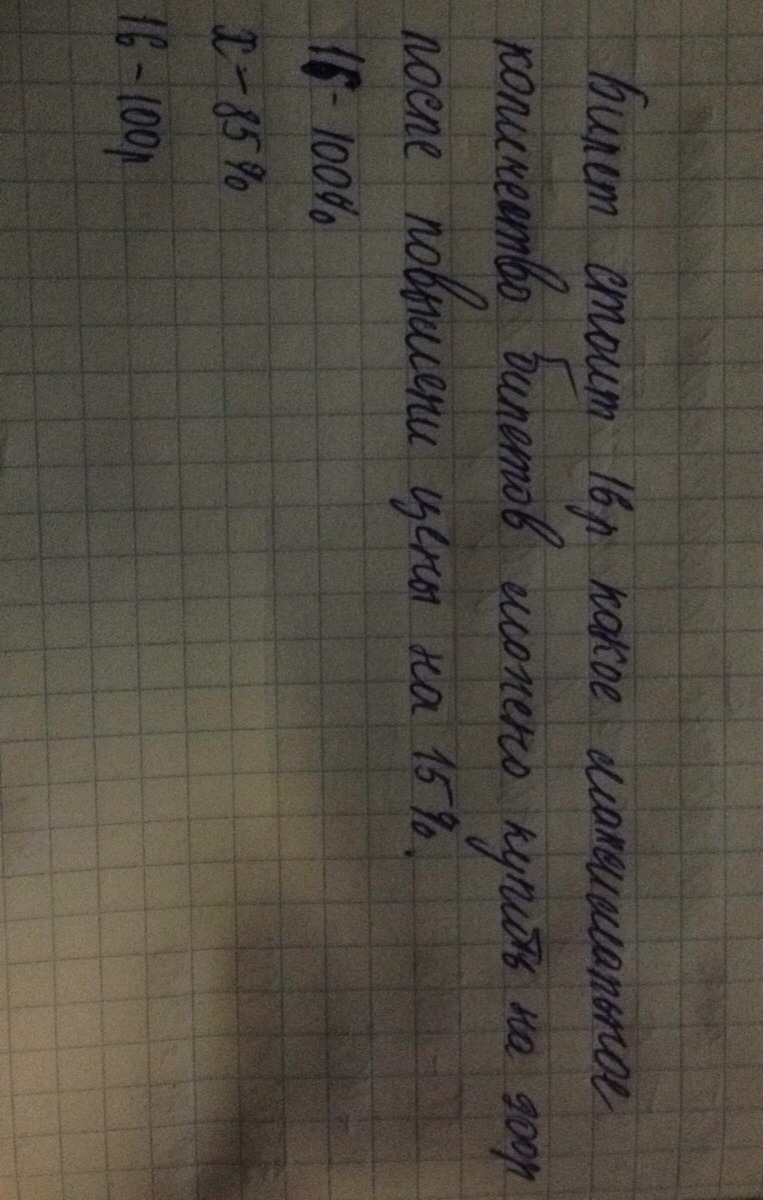 Билет стоит 16р какое максимальное
количество билетов можно купить на 200р
после повышени цены на 15%.
16 - 100%
х - 85%
16 - 100р